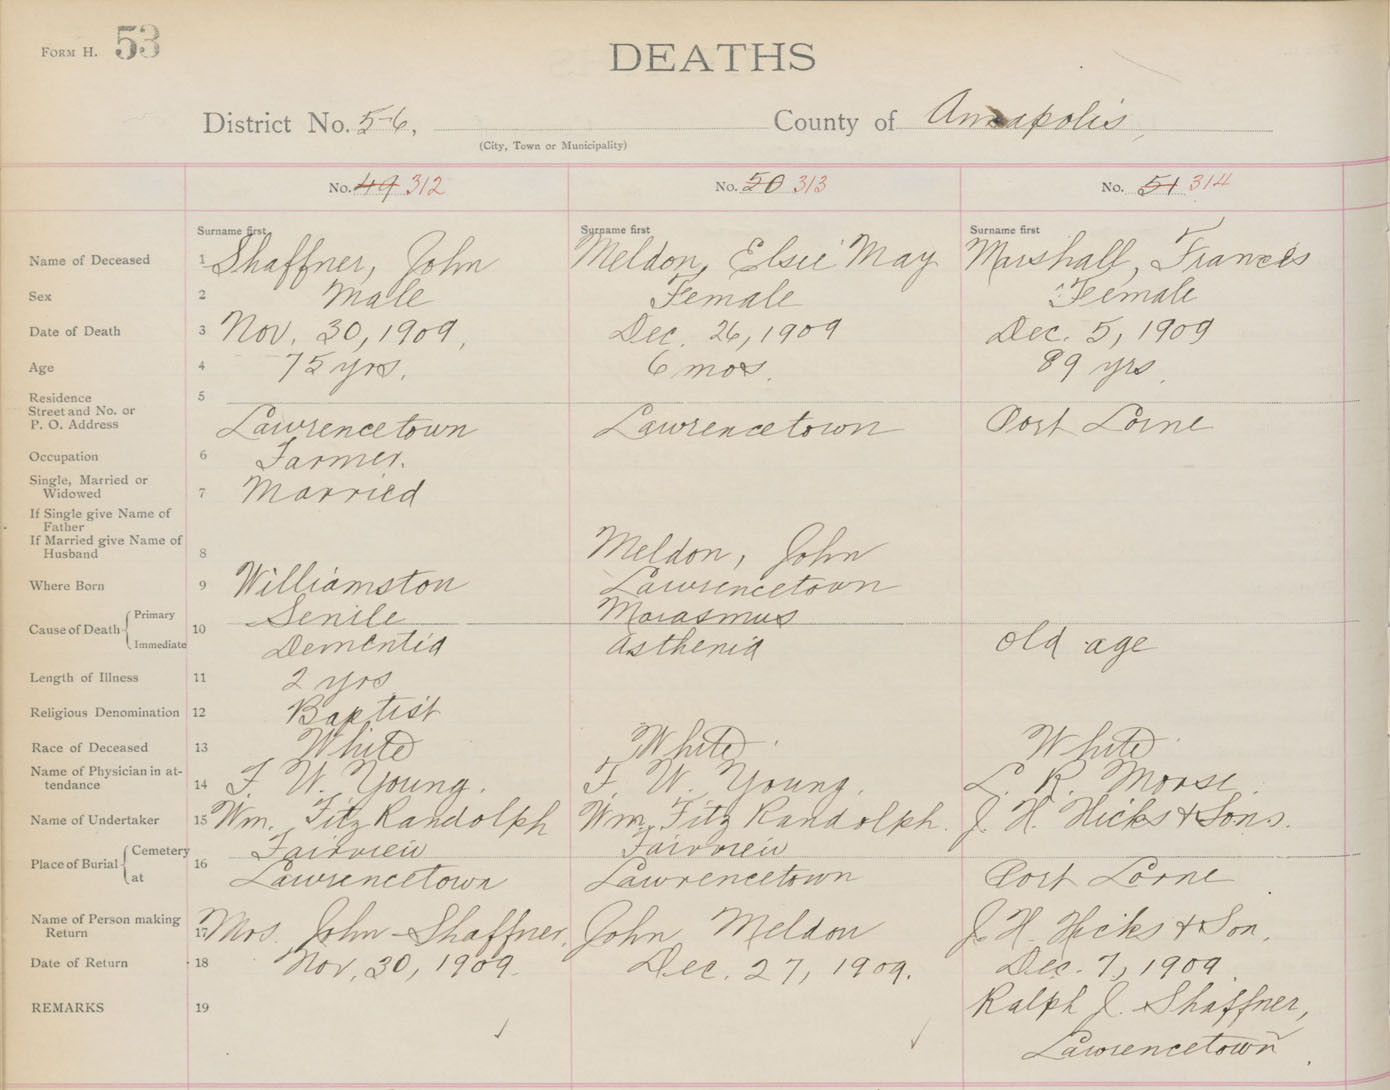 FORM H. 53
DEATHS
District No. 56, County of Annapolis,
(City, Town or Municipality)
No. 49 312 No. 50 313 No. 51 314
Surname first Surname first Surname first
Name of Deceased 1 Shaffner, John Meldon, Elsie May Marshall, Frances
Sex 2 Male Female Female
Date of Death 3 Nov. 30, 1909, Dec. 26, 1909 Dec. 5, 1909
Age 4 75 yrs. 6 mos. 89 yrs.
Residence 5
Street and No. or
P. O. Address Lawrencetown Lawrencetown Port Lorne
Occupation 6 Farmer.
Single, Married or
Widowed 7 Married
If Single give Name of
Father
If Married give Name of
Husband 8 Meldon, John
Where Born 9 Williamston Lawrencetown
Primary Senile Marasmus
Cause of Death 10
Immediate Dementia Asthenia old age
Length of Illness 11 2 yrs
Religious Denomination 12 Baptist
Race of Deceased 13 White White White
Name of Physician in at-
tendance 14 F. W. Young. F. W. Young. L. R. Morse.
Name of Undertaker 15 Wm. FitzRandolph Wm. FitzRandolph. J. H. Hicks & Sons.
Cemetery Fairview Fairview
Place of Burial 16
at Lawrencetown Lawrencetown Port Lorne
Name of Person making
Return 17 Mrs. John Shaffner. John Meldon J. H. Hicks & Son.
Date of Return 18 Nov. 30, 1909. Dec. 27, 1909. Dec. 7, 1909.
REMARKS 19 Ralph J. Shaffner,
Lawrencetown.